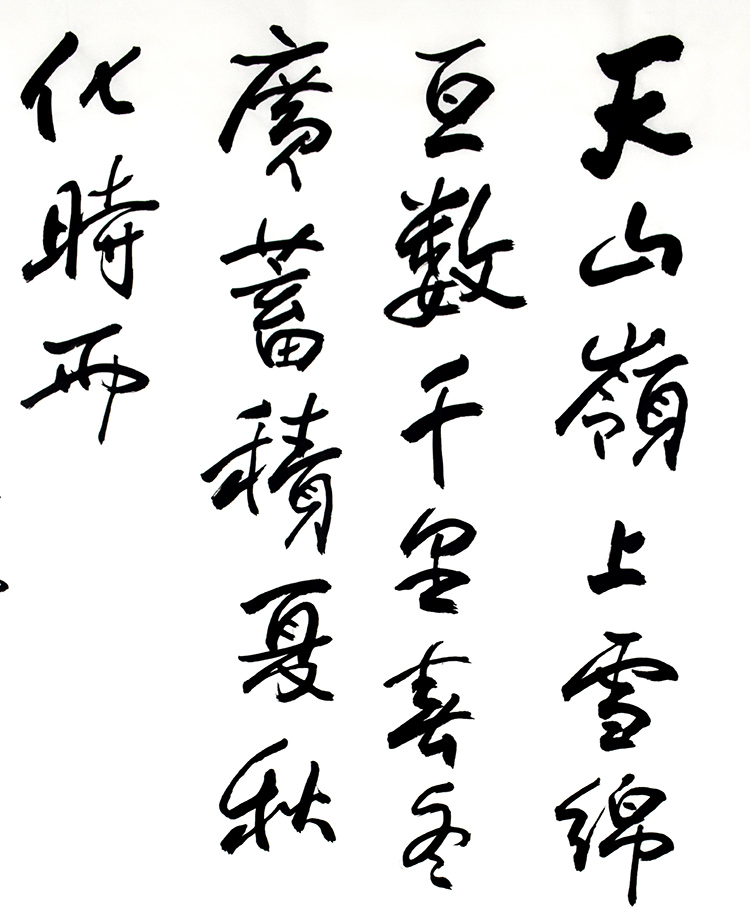 天山嶺上雪綿
亘數千里春冬
廣蓄積夏秋
化時雨